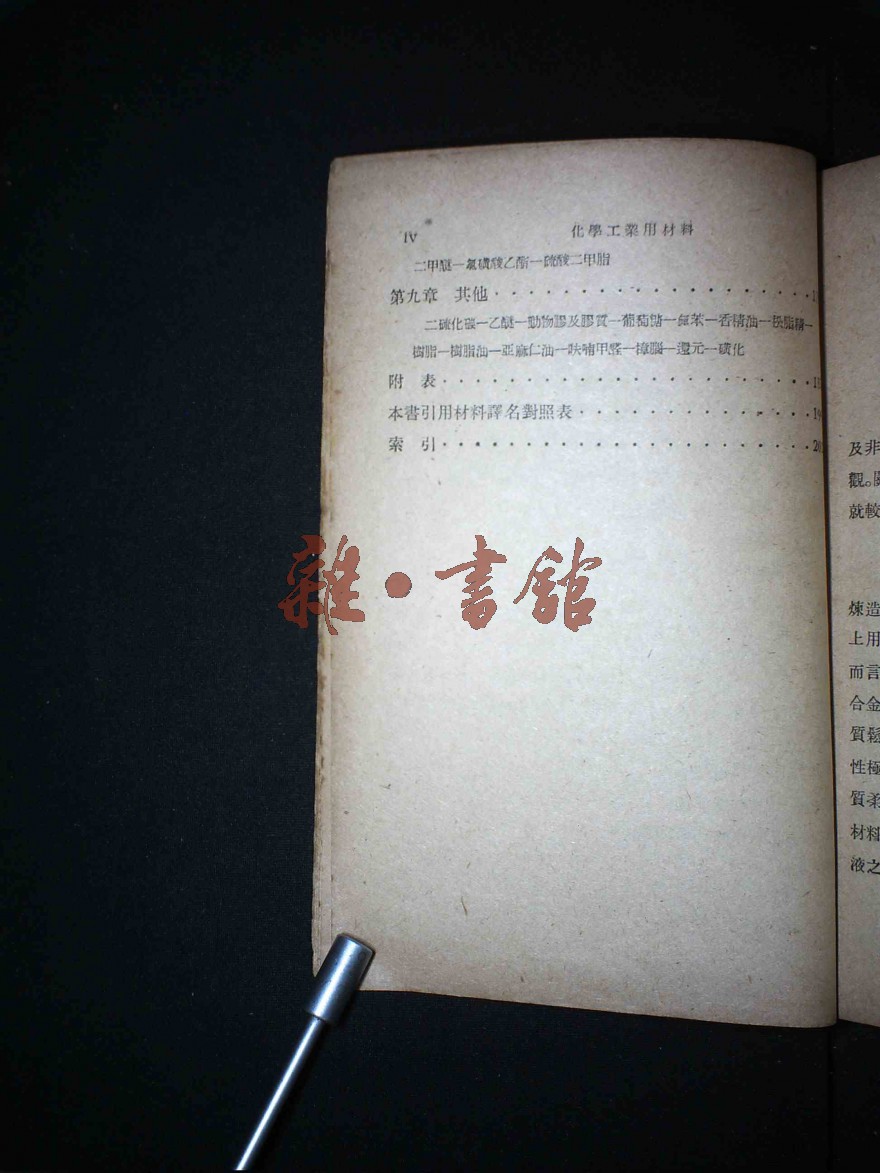 IV 化學工業用材料
二甲醚—氯磺酸乙酯—硫酸二甲脂
第九章 其他
二硫化碳—乙醚—動物膠及膠質—葡萄糖—氯苯—香精油—松脂精—
樹脂—樹脂油—亞麻仁油—呋喃甲醛—樟腦—還元—磺化
附 表
本書引用材料譯名對照表
索 引
雜·書館
及非
觀。
就較
煉造
上用
而言
合金
質鬆
性極
質柔
材料
液之